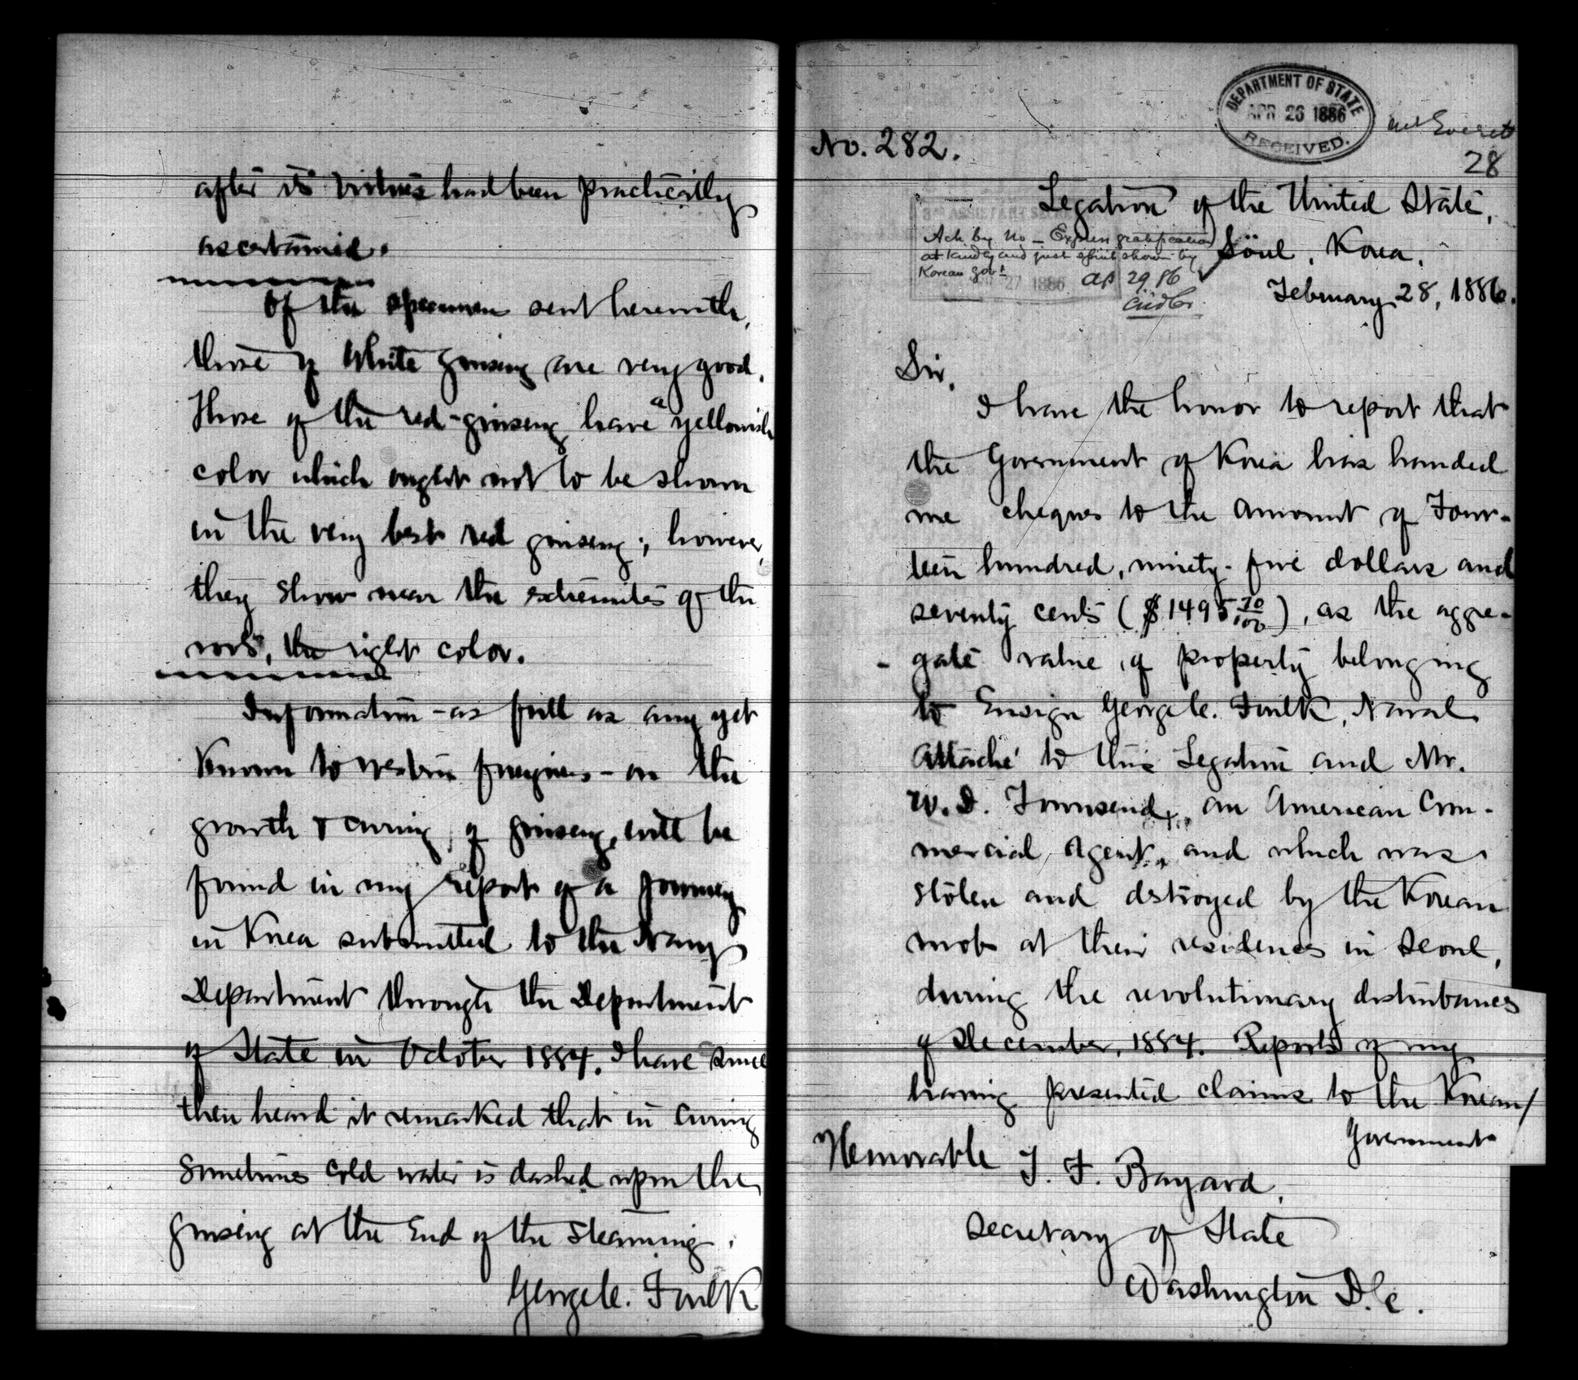 after its virtues had been practically
ascertained.
Of the specimen sent herewith,
those of White ginseng are very good.
Those of the red-ginseng have a yellowish
color which ought not to be shown
in the very best red ginseng; however,
they show near the extremities of the
roots, the right color.
Information - as full as any yet
known to western foreigners - on the
growth & curing, of ginseng, will be
found in my report of a journey
in Korea submitted to the Navy
Department through the Department
of State in October 1884. I have since
then heard it remarked that in curing
sometimes cold water is dashed upon the
ginseng at the end of the steaming.
George C. Foulk
DEPARTMENT OF STATE
APR 26 1886
RECEIVED.
No. 282.
28
Legation of the United States,
Ack by No - Express gratification
at kindly and just spirit shown by
Korean Gov't
27 1886
Ap 29. 86
Söul, Korea,
February 28, 1886.
Sir,
I have the honor to report that
the Government of Korea has handed
me cheques to the amount of Four-
teen hundred, ninety-five dollars and
seventy cents ($1495 70/100), as the aggre-
gate value, of property belonging
to Ensign George C. Foulk, Naval
Attaché to this Legation and Mr.
W. D. Townsend, an American Com-
mercial Agent, and which was
stolen and destroyed by the Korean
mob at their residences in Seoul,
during the revolutionary disturbances
of December, 1884. Reports of my
having presented claims to the Korean/
Government
Honorable T. F. Bayard,
Secretary of State
Washington D.C.